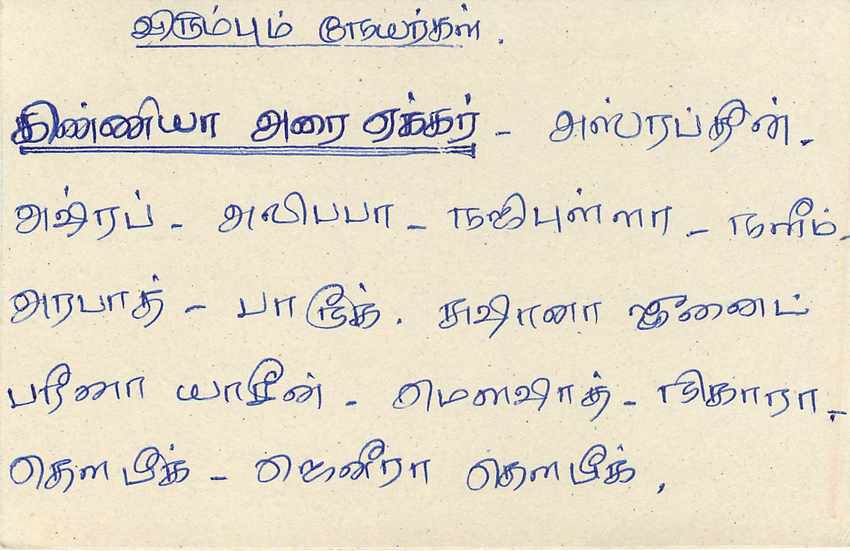 விரும்பும் நேயர்கள்.
கிண்ணியா அரை ஏக்கர் - அஸ்ரப்தின்.
அஷ்ரப் - அலிபபா - நஜிபுள்ளா - நளீம்.
அரபாத் - பாரூக். சுஷானா ஜுனைட்
பரீனா யாசீன் - மௌஷாத் - நிகாரா -
தௌபீக் - ஜெனீரா தௌபீக்.